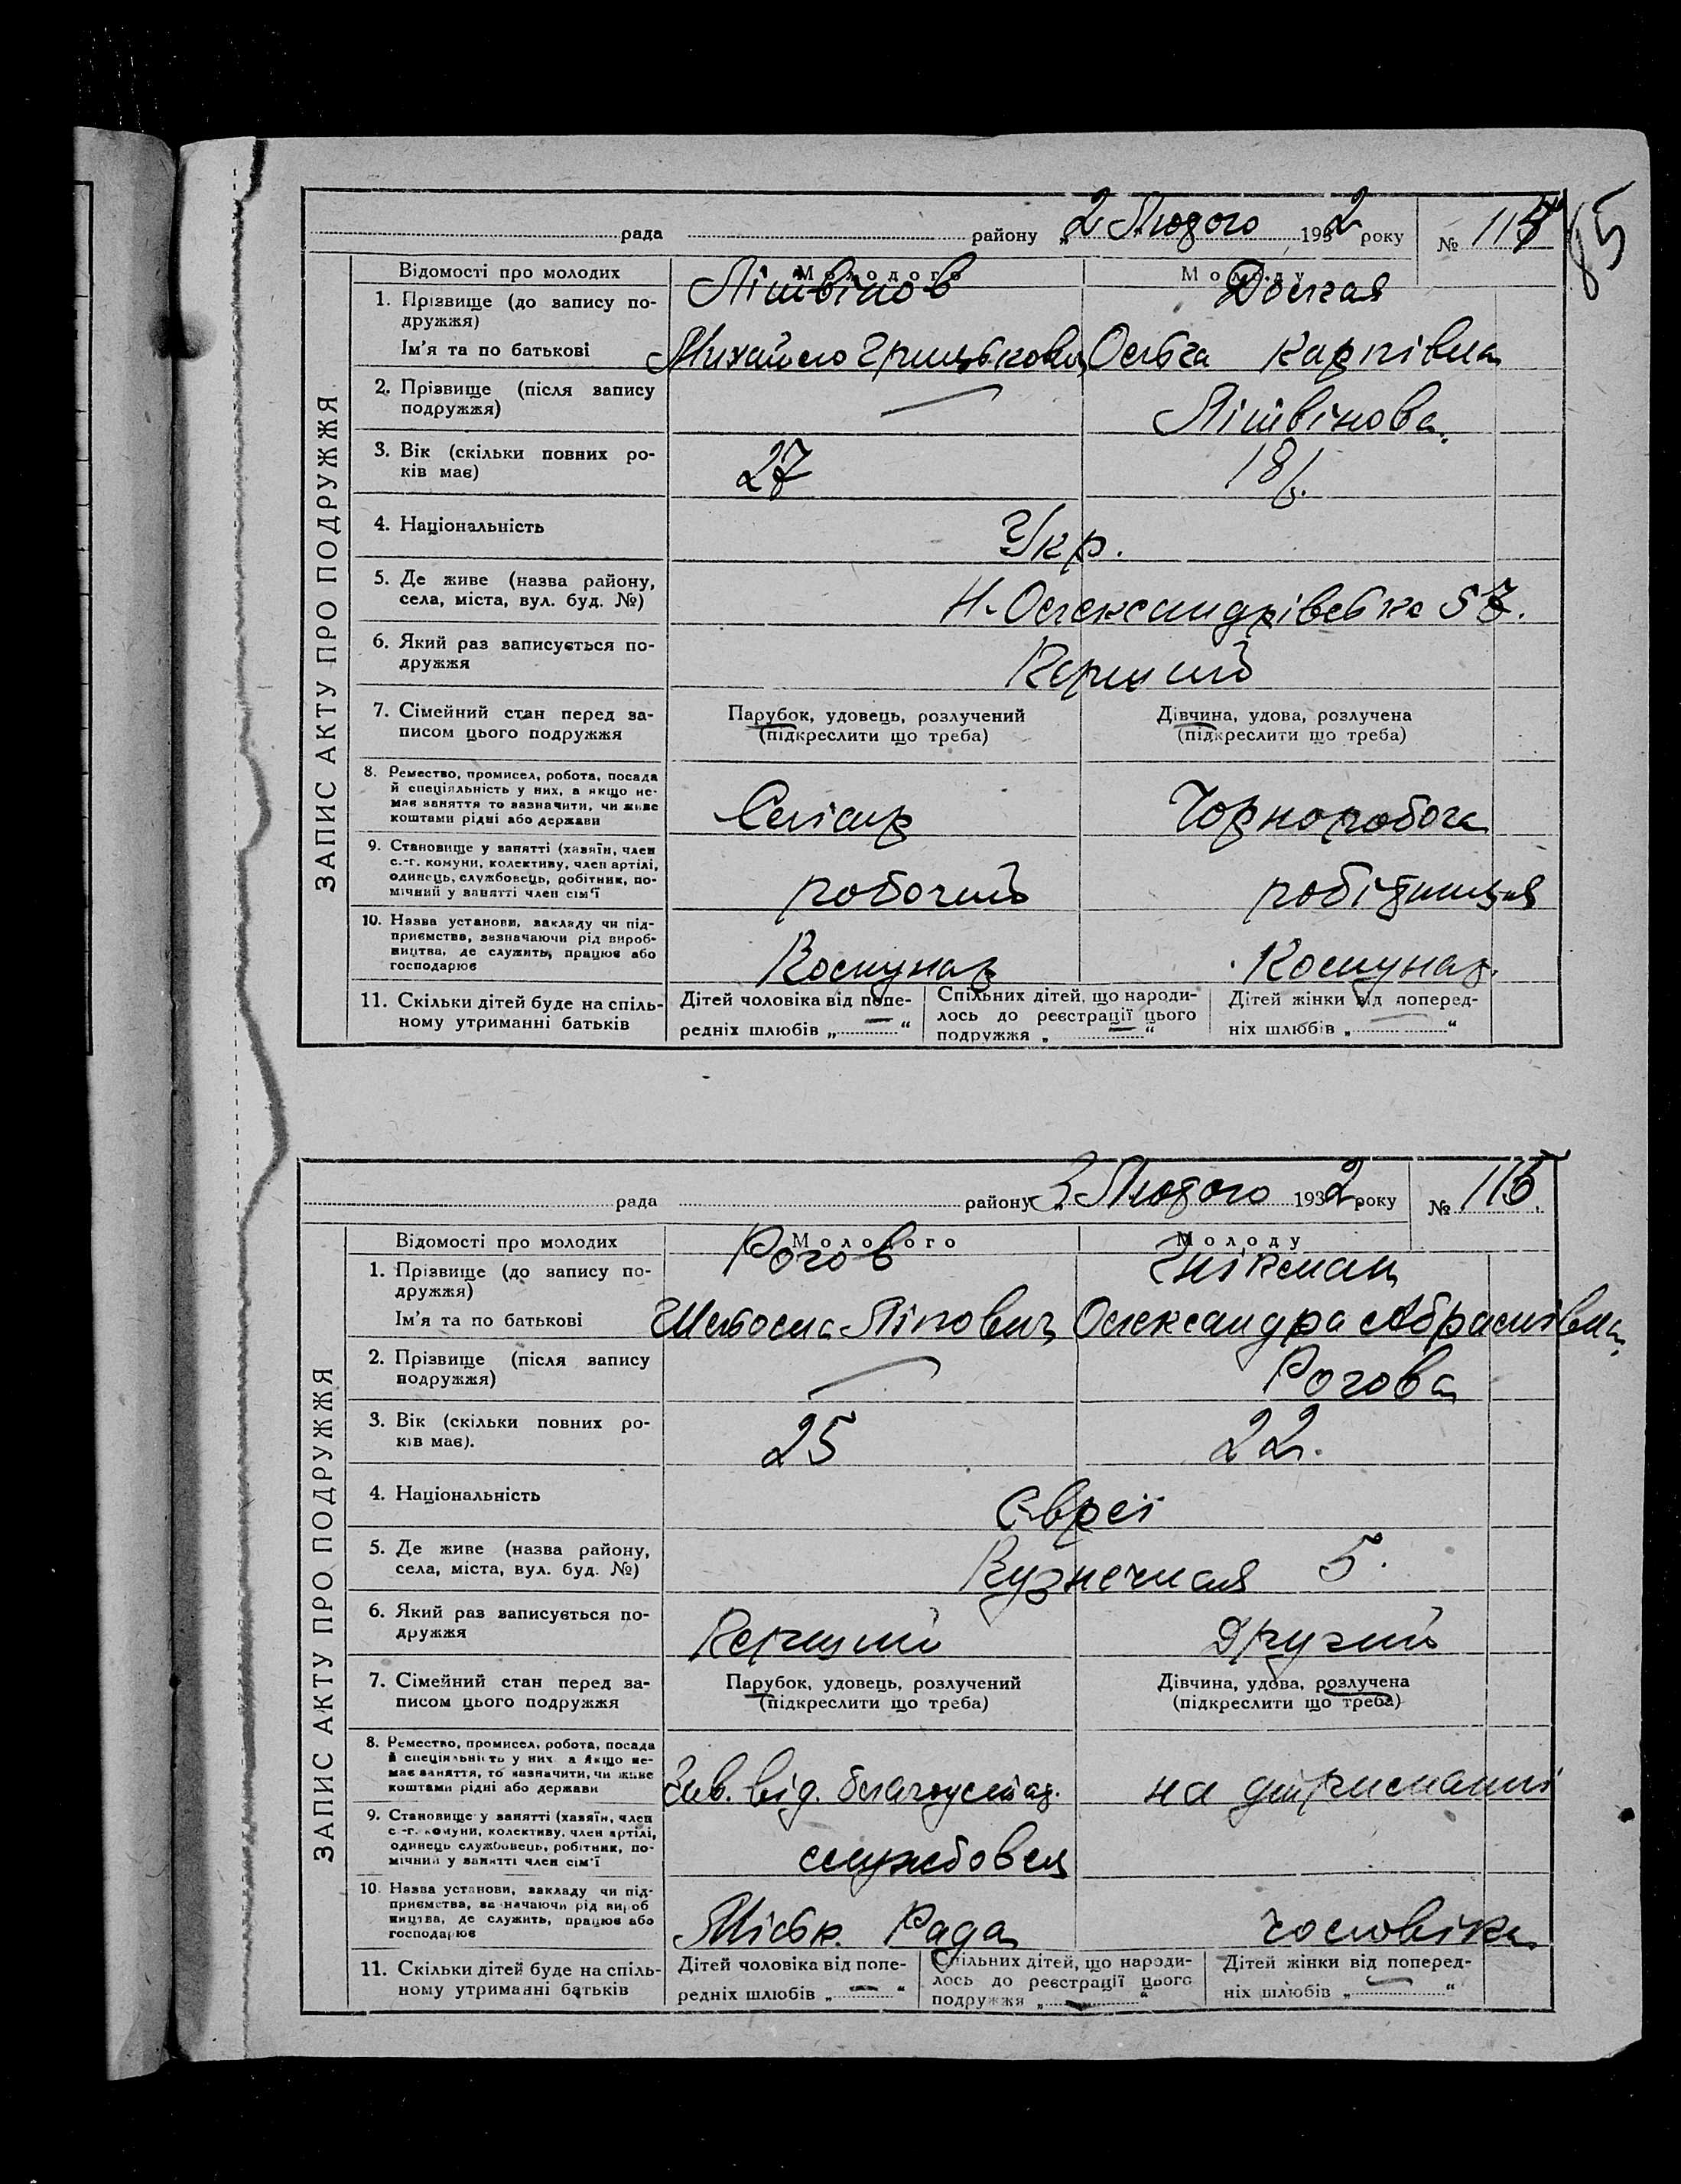 рада району „2 Лютого 1932 року № 114
85
ЗАПИС АКТУ ПРО ПОДРУЖЖЯ
Відомості про молодих Молодого Молоду
1. Прізвище (до запису по-
дружжя) Літвінов Долгая
Ім'я та по батькові Михайло Грицькович Ольга Карпівна
2. Прізвище (після запису
подружжя) — Літвінова.
3. Вік (скільки повних ро-
ків має) 27 18
4. Національність Укр.
5. Де живе (назва району,
села, міста, вул. буд. №) Н-Олександрівська 57.
6. Який раз записується по-
дружжя Перший
7. Сімейний стан перед за-
писом цього подружжя
Парубок, удовець, розлучений
(підкреслити що треба)
Дівчина, удова, розлучена
(підкреслити що треба)
8. Ремество, промисел, робота, посада
й спеціяльність у них, а якщо не-
має заняття то зазначити, чи живе
коштами рідні або держави
Слісар Чорноробоча
9. Становище у занятті (хазяїн, член
с.-г. комуни, колективу, член артілі,
одинець, службовець, робітник, по-
мічний у занятті член сім'ї
робочий робітниця
10. Назва установи, закладу чи під-
приємства, зазначаючи рід вироб-
ництва, де служить, працює або
господарює
Комунар Комунар.
11. Скільки дітей буде на спіль-
ному утриманні батьків
Дітей чоловіка від попе-
редніх шлюбів „—“
Спільних дітей, що народи-
лось до реєстрації цього
подружжя „—“
Дітей жінки від поперед-
ніх шлюбів „—“
рада району „3 Лютого 1932 року № 115
ЗАПИС АКТУ ПРО ПОДРУЖЖЯ
Відомості про молодих Молодого Молоду
1. Прізвище (до запису по-
дружжя) Рогов
Ім'я та по батькові Шльома Олександра Абрамівна
2. Прізвище (після запису
подружжя) — Рогова
3. Вік (скільки повних ро-
ків має). 25 22.
4. Національність Євреї
5. Де живе (назва району,
села, міста, вул. буд. №) Кузнечная 5.
6. Який раз записується по-
дружжя Перший Другий
7. Сімейний стан перед за-
писом цього подружжя
Парубок, удовець, розлучений
(підкреслити що треба)
Дівчина, удова, розлучена
(підкреслити що треба)
8. Ремество, промисел, робота, посада
й спеціяльність у них а якщо не-
має заняття, то зазначити, чи живе
коштами рідні або держави
Зав. від. благоустр. на утриманні
9. Становище у занятті (хазяїн, член
с.-г. комуни, колективу, член артілі,
одинець службовець, робітник, по-
мічний у занятті член сім'ї
службовець
10. Назва установи, закладу чи під-
приємства, зазначаючи рід вироб
ництва, де служить, працює або
господарює
Міськ. Рада чоловіка
11. Скільки дітей буде на спіль-
ному утриманні батьків
Дітей чоловіка від попе-
редніх шлюбів „—“
Спільних дітей, що народи-
лось до реєстрації цього
подружжя „—“
Дітей жінки від поперед-
ніх шлюбів „—“